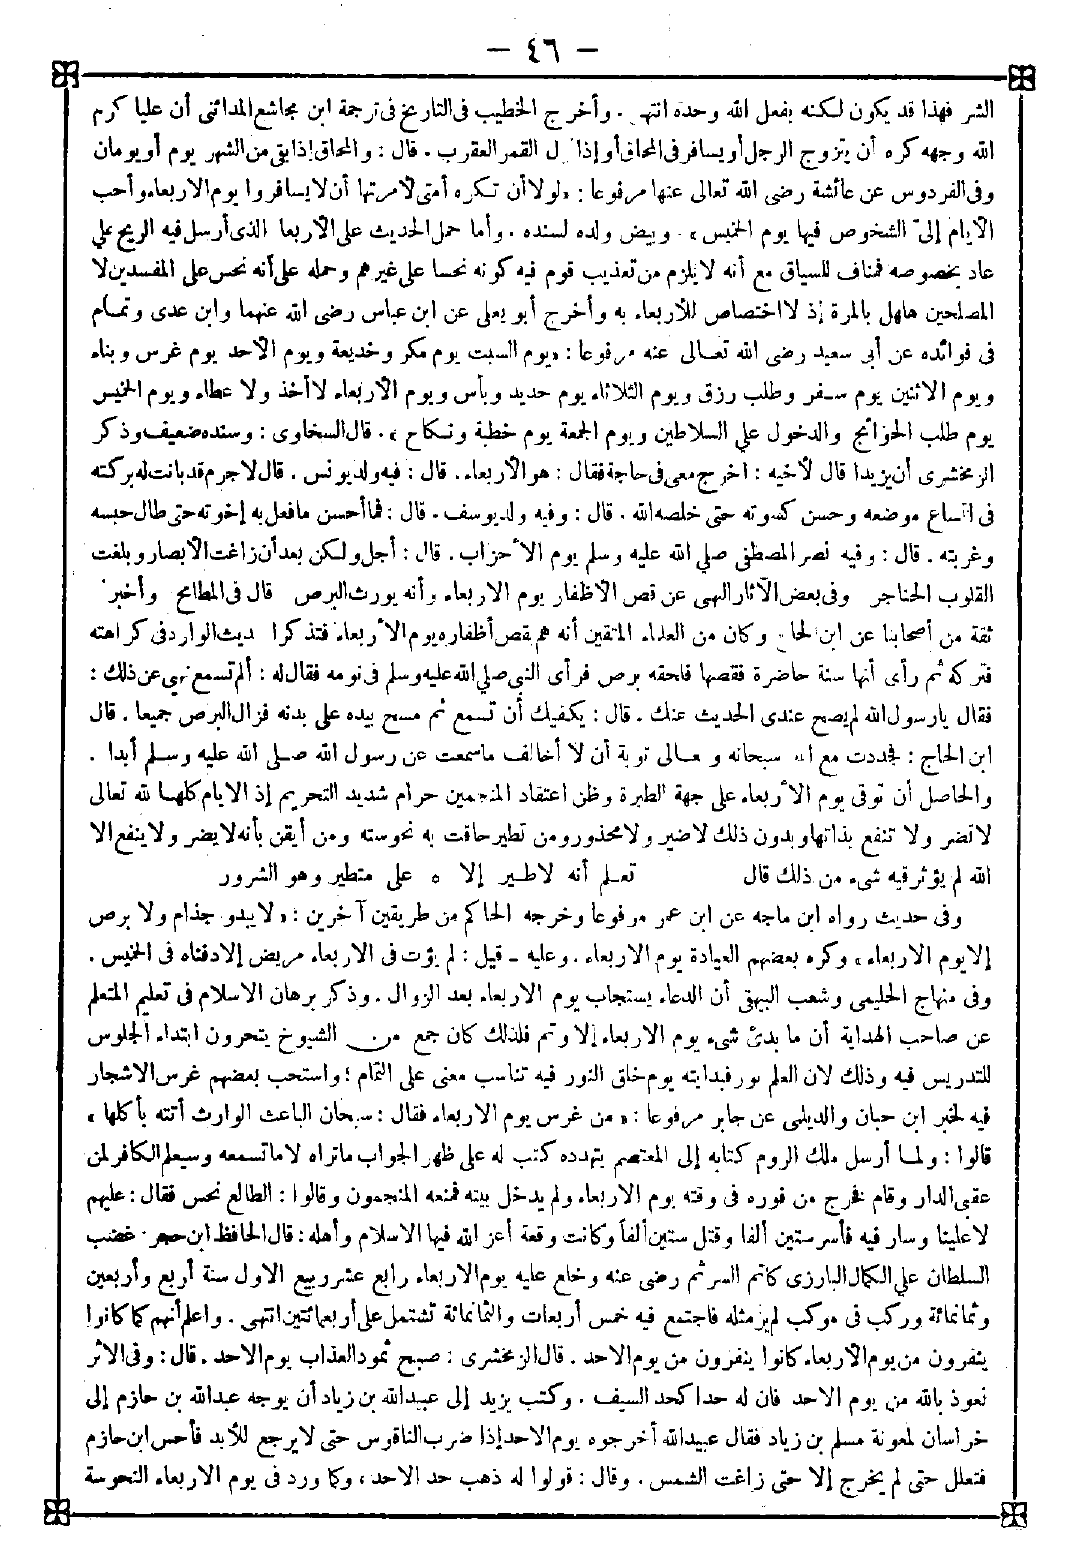 — ٤٦ —
الشر فهذا قد يكون لكنه بفعل الله وحده انتهى . وأخرج الخطيب فى التاريخ فى ترجمة ابن مجاشع المدائنى أن عليا كرم
الله وجهه كره أن يتزوج الرجل أو يسافر فى المحاق أو إذا ل القمر العقرب . قال : والمحاق إذا بقى من الشهر يوم أو يومان
وفى الفردوس عن عائشة رضى الله تعالى عنها مرفوعا : «لولا أن تكره أمتى لأمرتها أن لا يسافروا يوم الاربعاء وأحب
الأيام إلىّ الشخوص فيها يوم الخميس» . وبيض ولده لسنده . وأما حمل الحديث على الأربعا الذى أرسل فيه الريح علي
عاد بخصوصه فمناف للسياق مع أنه لا يلزم من تعذيب قوم فيه كونه نحسا على غيرهم وحمله على أنه نحس على المفسدين لا
المصلحين هلهل بالمرة إذ لا اختصاص للأربعاء به وأخرج أبو يعلى عن ابن عباس رضى الله عنهما وابن عدى وتمام
فى فوائده عن أبى سعيد رضى الله تعالى عنه مرفوعا : «يوم السبت يوم مكر وخديعة ويوم الأحد يوم غرس وبناء
ويوم الاثنين يوم سفر وطلب رزق ويوم الثلاثاء يوم حديد وبأس ويوم الأربعاء لا أخذ ولا عطاء ويوم الخميس
يوم طلب الحوائج والدخول علي السلاطين ويوم الجمعة يوم خطبة ونكاح» . قال السخاوى : وسنده ضعيف وذكر
الزمخشرى أن يزيدا قال لأخيه : اخرج معى فى حاجة فقال : هو الأربعاء . قال : فيه ولد يونس . قال لا جرم قد بانت له بركته
فى اتساع موضعه وحسن كسوته حتى خلصه الله . قال : وفيه ولد يوسف . قال : فما أحسن ما فعل به إخوته حتى طال حبسه
وغربته . قال : وفيه نصر المصطفى صلي الله عليه وسلم يوم الأحزاب . قال : أجل ولكن بعد أن زاغت الأبصار وبلغت
القلوب الحناجر وفى بعض الآثار النهى عن قص الأظفار يوم الاربعاء وأنه يورث البرص قال فى المطامح وأخبر
ثقة من أصحابنا عن ابن الحاج وكان من العلماء المتقين أنه هم بقص أظفاره يوم الأربعاء فتذكر ا ديث الوارد فى كراهته
فتركه ثم رأى أنها سنة حاضرة فقصها فلحقه برص فرأى النبى صلي الله عليه وسلم فى نومه فقال له : ألم تسمع نهيى عن ذلك :
فقال يارسول الله لم يصح عندى الحديث عنك . قال : يكفيك أن تسمع ثم مسح بيده على بدنه فزال البرص جميعا . قال
ابن الحاج : فجددت مع الله سبحانه وتعالى توبة أن لا أخالف ما سمعت عن رسول الله صلى الله عليه وسلم أبدا .
والحاصل أن توقى يوم الأربعاء على جهة الطيرة وظن اعتقاد المنجمين حرام شديد التحريم إذ الايام كلها لله تعالى
لا تضر ولا تنفع بذاتها وبدون ذلك لا ضير ولا محذور ومن تطير حاقت به نحوسته ومن أيقن بأنه لا يضر ولا ينفع إلا
الله لم يؤثر فيه شىء من ذلك قال تعلم أنه لا طير إلا ه على متطير وهو الشرور
وفى حديث رواه ابن ماجه عن ابن عمر مرفوعا وخرجه الحاكم من طريقين آخرين : «لا يبدو جذام ولا برص
إلا يوم الاربعاء» وكره بعضهم العيادة يوم الاربعاء . وعليه - قيل : لم يؤت فى الاربعاء مريض إلا دفناه فى الخميس .
وفى منهاج الحليمى وشعب البيهقى أن الدعاء يستجاب يوم الاربعاء بعد الزوال . وذكر برهان الاسلام فى تعليم المتعلم
عن صاحب الهداية أن ما بدئ شىء يوم الاربعاء إلا وتم فلذلك كان جمع من الشيوخ يتحرون ابتداء الجلوس
للتدريس فيه وذلك لان العلم نور فبدايته يوم خلق النور فيه تناسب معنى على التمام ؛ واستحب بعضهم غرس الاشجار
فيه لخبر ابن حبان والديلمى عن جابر مرفوعا : «من غرس يوم الاربعاء فقال : سبحان الباعث الوارث أتته بأكلها»
قالوا : ولما أرسل ملك الروم كتابه إلى المعتصم يتهدده كتب له على ظهر الجواب ما تراه لا ما تسمعه وسيعلم الكافر لمن
عقبى الدار وقام فخرج من فوره فى وقته يوم الاربعاء ولم يدخل بيته فمنعه المنجمون وقالوا : الطالع نحس فقال : عليهم
لا علينا وسار فيه فأسر ستين ألفا وقتل ستين ألفاً وكانت وقعة أعز الله فيها الاسلام وأهله : قال الحافظ ابن حجر غضب
السلطان علي الكمال البارزى كاتم السر ثم رضى عنه وخلع عليه يوم الاربعاء رابع عشر ربيع الاول سنة أربع وأربعين
وثمانمائة وركب فى موكب لم ير مثله فاجتمع فيه خمس أربعات والثمانمائة تشتمل على أربعمائتين انتهى . واعلم أنهم كما كانوا
ينفرون من يوم الأربعاء كانوا ينفرون من يوم الاحد . قال الزمخشرى : صبح ثمود العذاب يوم الاحد . قال : وفى الاثر
نعوذ بالله من يوم الاحد فان له حدا كحد السيف . وكتب يزيد إلى عبيد الله بن زياد أن يوجه عبدالله بن حازم إلى
خراسان لمعونة مسلم بن زياد فقال عبيدالله أخرجوه يوم الاحد إذا ضرب الناقوس حتى لا يرجع للأبد فأحس ابن حازم
فتعلل حتى لم يخرج إلا حتى زاغت الشمس . وقال : قولوا له ذهب حد الاحد ، وكما ورد فى يوم الاربعاء النحوسة